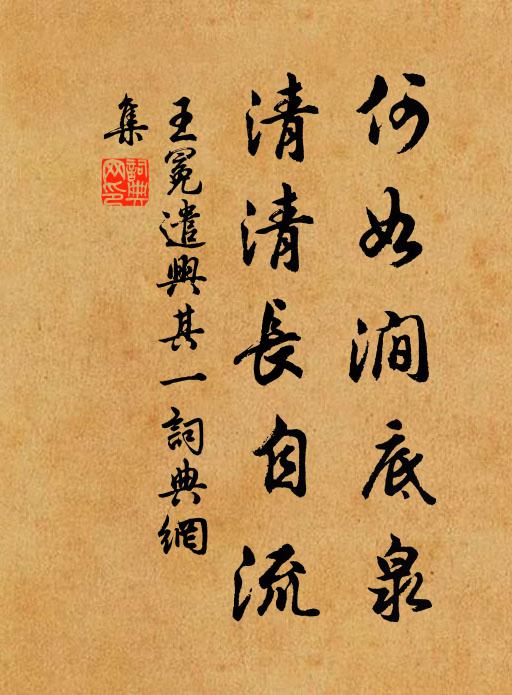 何如澗底泉
清清長自流
王冕遣興其一詞典網
集
詞典網印